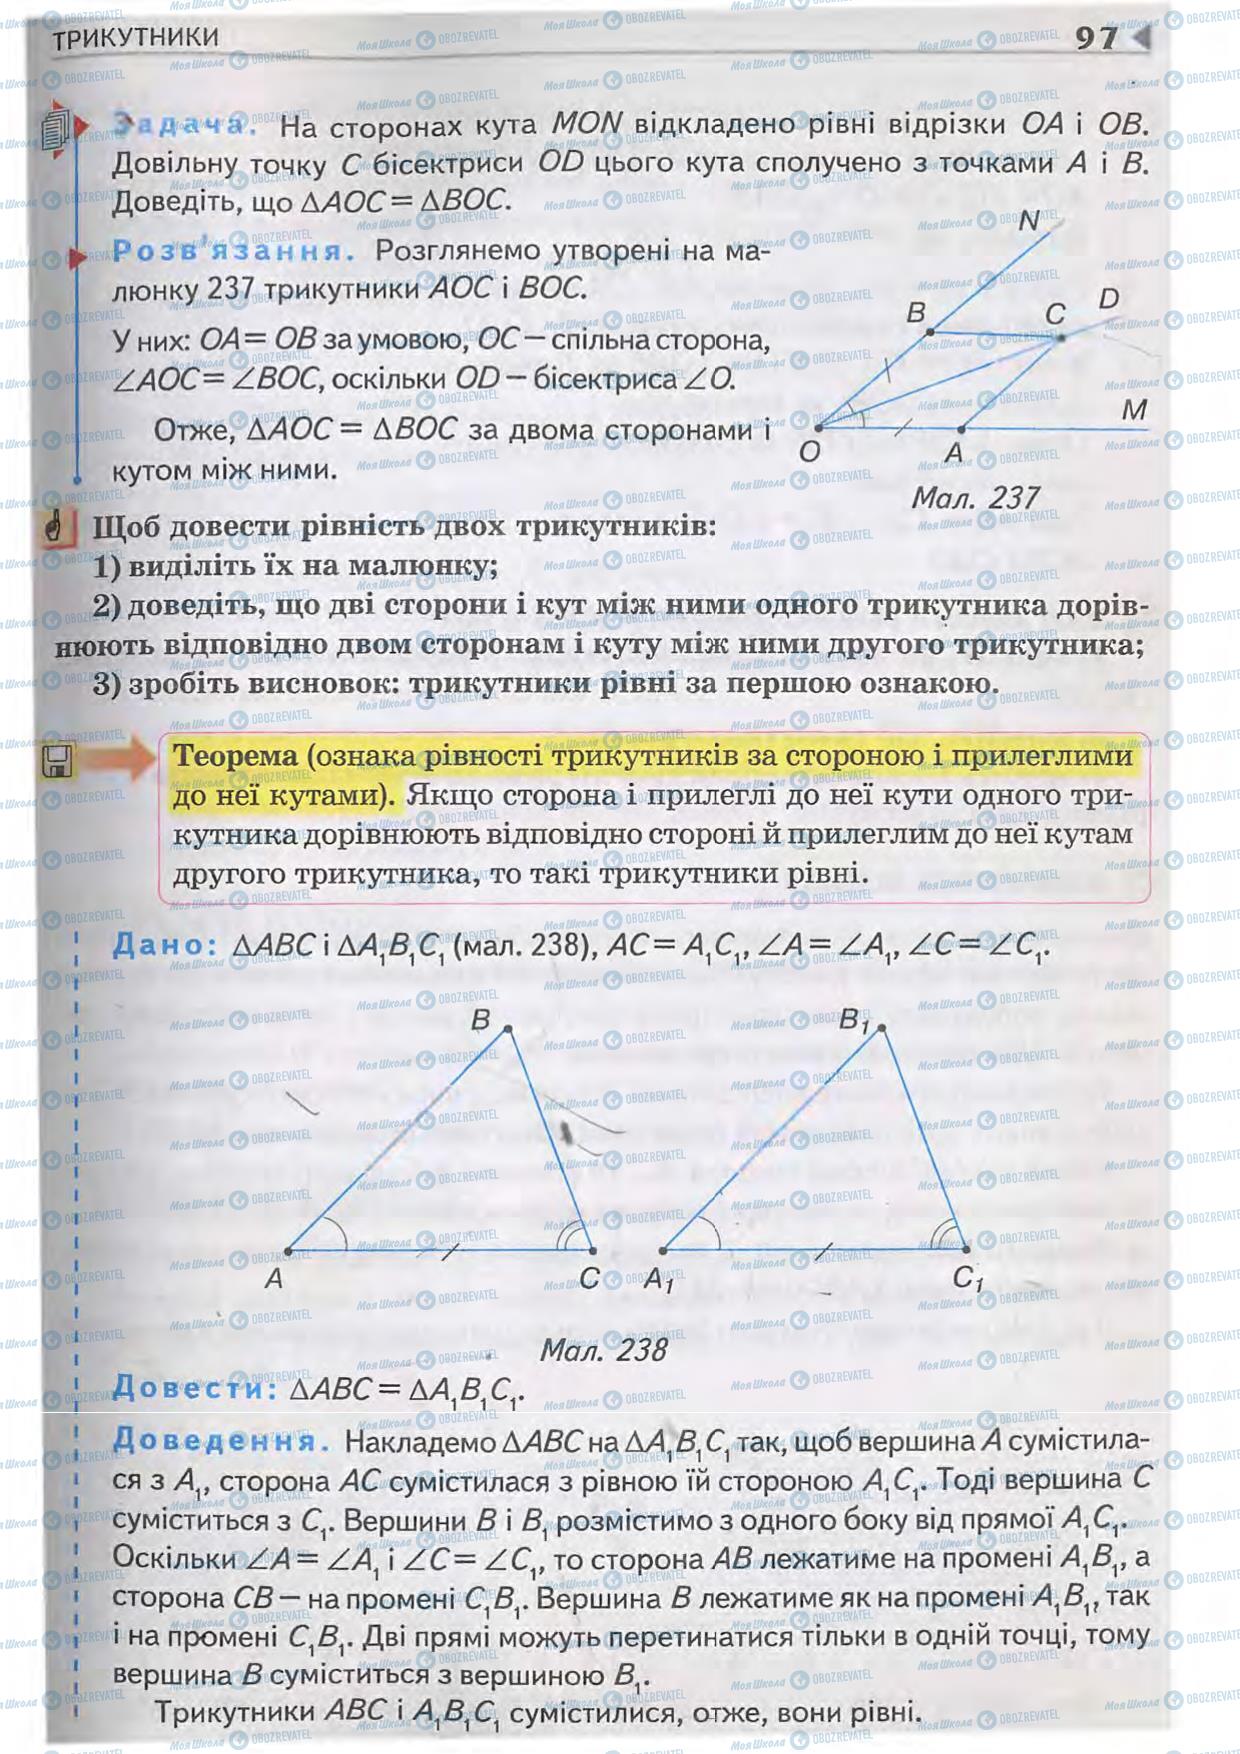 ТРИКУТНИКИ
97
Задача. На сторонах кута MON відкладено рівні відрізки OA і OB.
Довільну точку C бісектриси OD цього кута сполучено з точками A і B.
Доведіть, що △AOC = △BOC.
Розв'язання. Розглянемо утворені на ма-
люнку 237 трикутники AOC і BOC.
У них: OA = OB за умовою, OC — спільна сторона,
∠AOC = ∠BOC, оскільки OD — бісектриса ∠O.
Отже, △AOC = △BOC за двома сторонами і
кутом між ними.
N
B
C
D
M
O
A
Мал. 237
Щоб довести рівність двох трикутників:
1) виділіть їх на малюнку;
2) доведіть, що дві сторони і кут між ними одного трикутника дорів-
нюють відповідно двом сторонам і куту між ними другого трикутника;
3) зробіть висновок: трикутники рівні за першою ознакою.
Теорема (ознака рівності трикутників за стороною і прилеглими
до неї кутами). Якщо сторона і прилеглі до неї кути одного три-
кутника дорівнюють відповідно стороні й прилеглим до неї кутам
другого трикутника, то такі трикутники рівні.
Дано: △ABC і △A₁B₁C₁ (мал. 238), AC = A₁C₁, ∠A = ∠A₁, ∠C = ∠C₁.
B
B₁
A
C
A₁
C₁
Мал. 238
Довести: △ABC = △A₁B₁C₁.
Доведення. Накладемо △ABC на △A₁B₁C₁ так, щоб вершина A сумістила-
ся з A₁, сторона AC сумістилася з рівною їй стороною A₁C₁. Тоді вершина C
суміститься з C₁. Вершини B і B₁ розмістимо з одного боку від прямої A₁C₁.
Оскільки ∠A = ∠A₁ і ∠C = ∠C₁, то сторона AB лежатиме на промені A₁B₁, а
сторона CB — на промені C₁B₁. Вершина B лежатиме як на промені A₁B₁, так
і на промені C₁B₁. Дві прямі можуть перетинатися тільки в одній точці, тому
вершина B суміститься з вершиною B₁.
Трикутники ABC і A₁B₁C₁ сумістилися, отже, вони рівні.
Моя Школа OBOZREVATEL